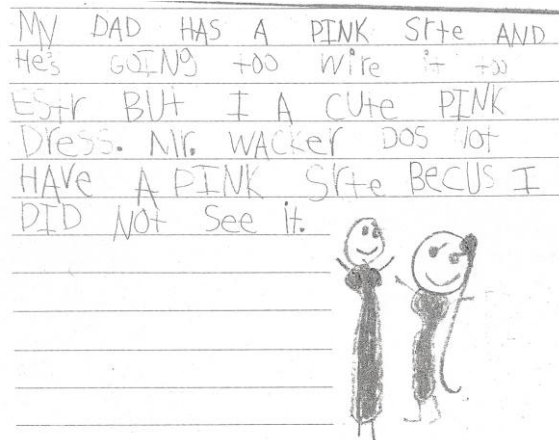 MY DAD HAS A PINK Srte AND
He's GOING too wire it too
Estr BUt I A CUte PINK
Dress. Mr. WACKer DOS Not
HAVe A PINK Srte BecUS I
DID NOt See it.